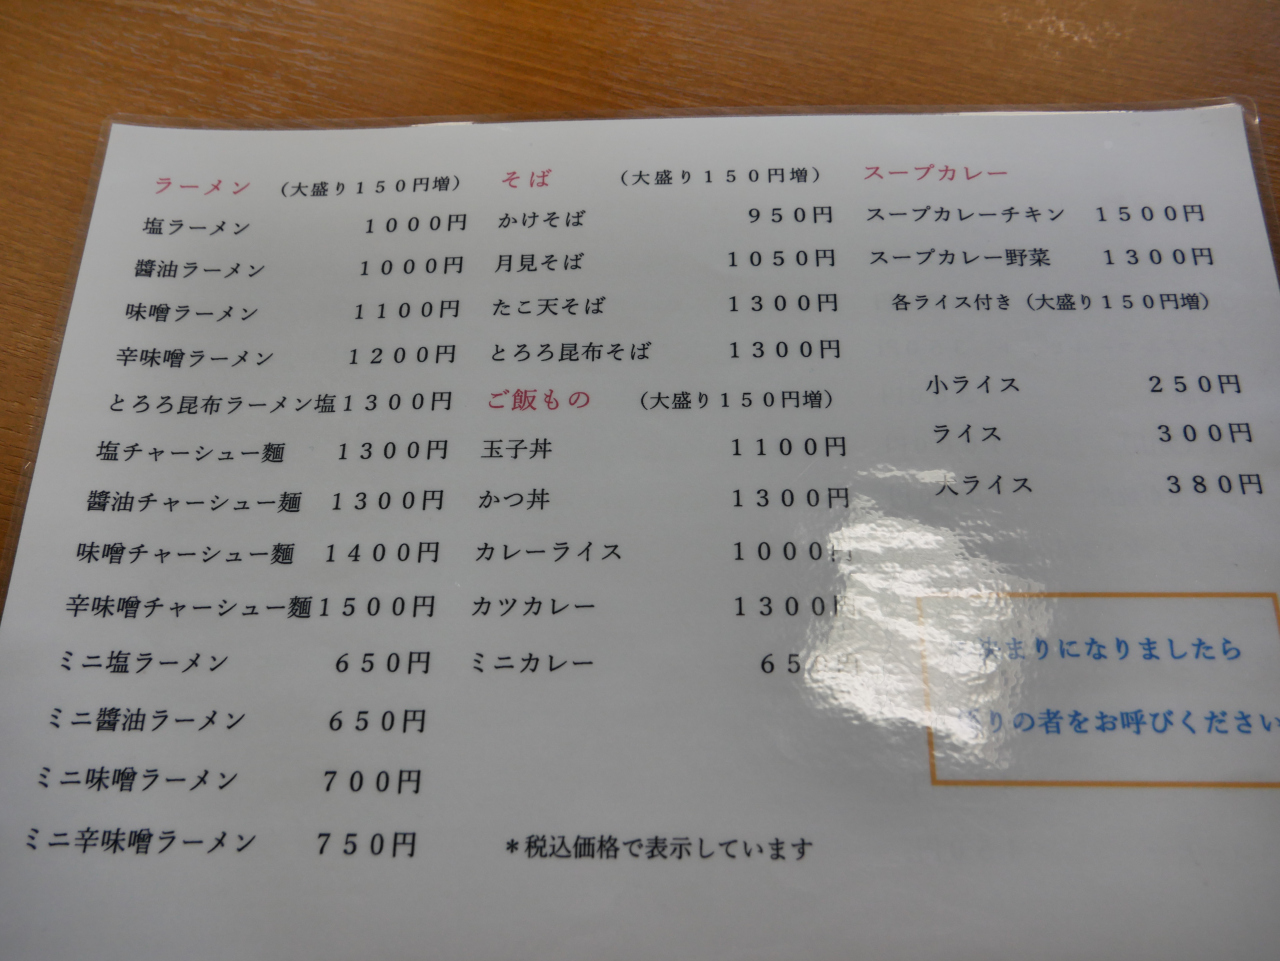 ラーメン （大盛り１５０円増）
塩ラーメン １０００円
醬油ラーメン １０００円
味噌ラーメン １１００円
辛味噌ラーメン １２００円
とろろ昆布ラーメン塩１３００円
塩チャーシュー麵 １３００円
醬油チャーシュー麵 １３００円
味噌チャーシュー麵 １４００円
辛味噌チャーシュー麵１５００円
ミニ塩ラーメン ６５０円
ミニ醬油ラーメン ６５０円
ミニ味噌ラーメン ７００円
ミニ辛味噌ラーメン ７５０円
そば （大盛り１５０円増）
かけそば ９５０円
月見そば １０５０円
たこ天そば １３００円
とろろ昆布そば １３００円
ご飯もの （大盛り１５０円増）
玉子丼 １１００円
かつ丼 １３００円
カレーライス １０００円
カツカレー １３００円
ミニカレー ６５０円
＊税込価格で表示しています
スープカレー
スープカレーチキン １５００円
スープカレー野菜 １３００円
各ライス付き（大盛り１５０円増）
小ライス ２５０円
ライス ３００円
大ライス ３８０円
まりになりましたら
りの者をお呼びください